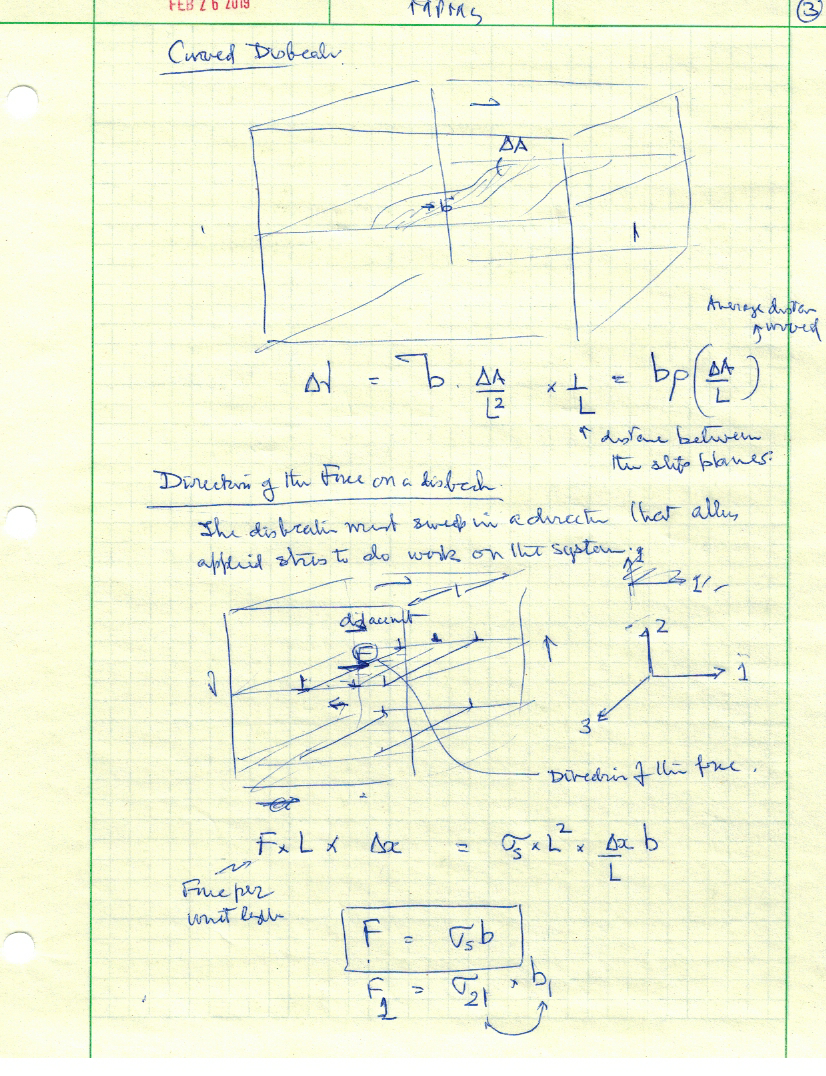 FEB 26 2019
MPMS
3
Curved Dislocatn.
ΔA
→ b
Average distan
moved
Δγ = b · ΔA/L² × 1/L = bρ(ΔA/L)
↑ distance between
the slip planes.
Direction of the Force on a dislocatn.
The dislocatin must sweep in a directin that allows
applied stress to do work on the system.
L
F
2
1
3
Direction of the force.
F × L × Δx = σs × L² × Δx/L b
Force per
unit length
F = σs b
F1 = σ21 × b1